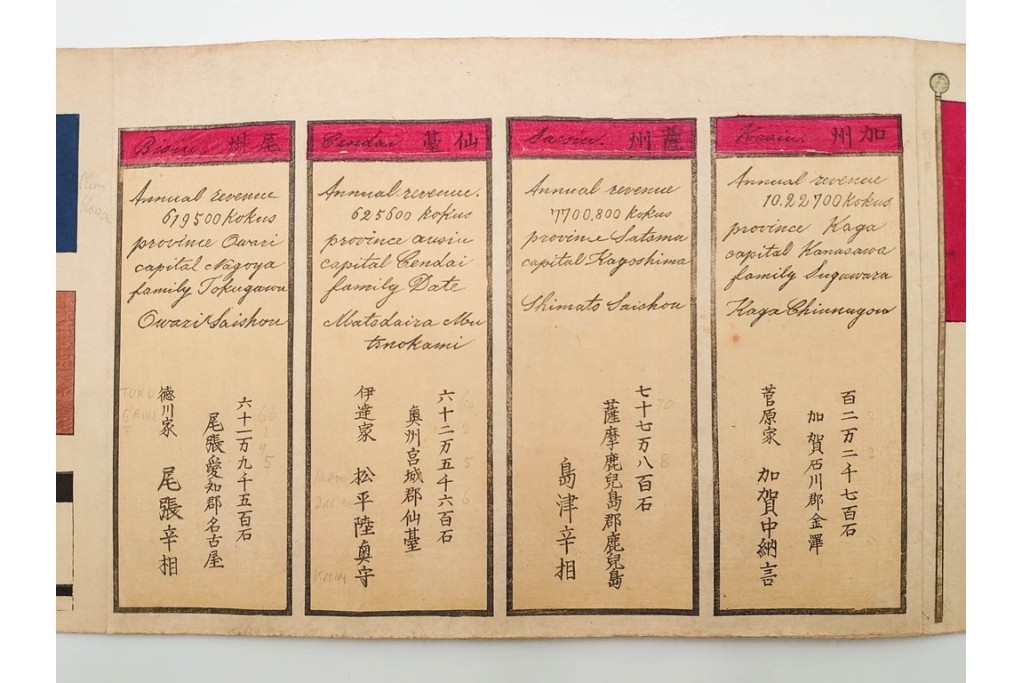 Bisiu. 尾州
Annual revenue
619500 kokus
province Owari
capital Nagoya
family Tokugawa
Owari Saishou
六十一万九千五百石
尾張愛知郡名古屋
徳川家 尾張辛相
Cendai 仙臺
Annual revenue.
625600 kokus
province ausiu
capital Cendai
family Date
Matsdaira Mu
tsnokami
六十二万五千六百石
奥州宮城郡仙臺
伊達家 松平陸奥守
Sassiu. 薩州
Annual revenue
7700,800 kokus
province Satsma
capital Kagoshima
Shimats Saishou
七十七万八百石
薩摩鹿兒島郡鹿兒島
島津辛相
加州
Annual revenue
10.22700 kokus
province Kaga
capital Kanasawa
family Sugawara
Kaga Chiunugou
百二万二千七百石
加賀石川郡金澤
菅原家 加賀中納言